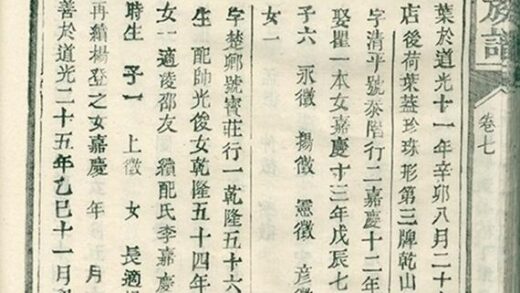 族譜
卷七
葉於道光十一年辛卯八月二十
店後荷葉蓋珍珠形第三牌乾山
字清平號泰階行二嘉慶十二年
娶瞿一本女嘉慶十三年戊辰七
子六 永徵 揚徵 憲徵 彥徵
女一
字楚卿號寶莊行一乾隆五十六
生 配帥光俊女乾隆五十四年
女一適凌邵友 續配氏李嘉慶
時生 子一 上徵 女 長適
再續楊登之女嘉慶 年 月
善於道光二十五年乙巳十一月